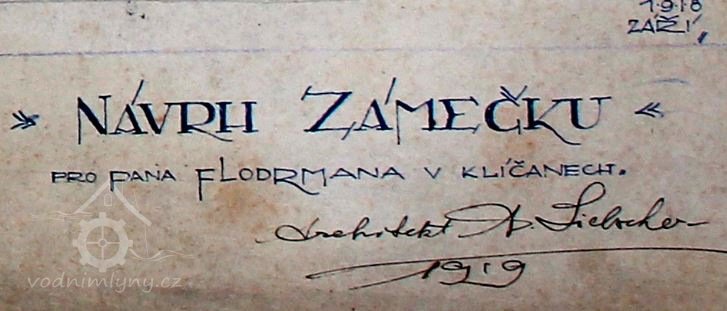 1918
ZÁŘÍ,
» NÁVRH ZÁMEČKU «
PRO PANA FLODRMANA V KLÍČANECH.
Architekt A. Liebscher
1919
vodnimlyny.cz